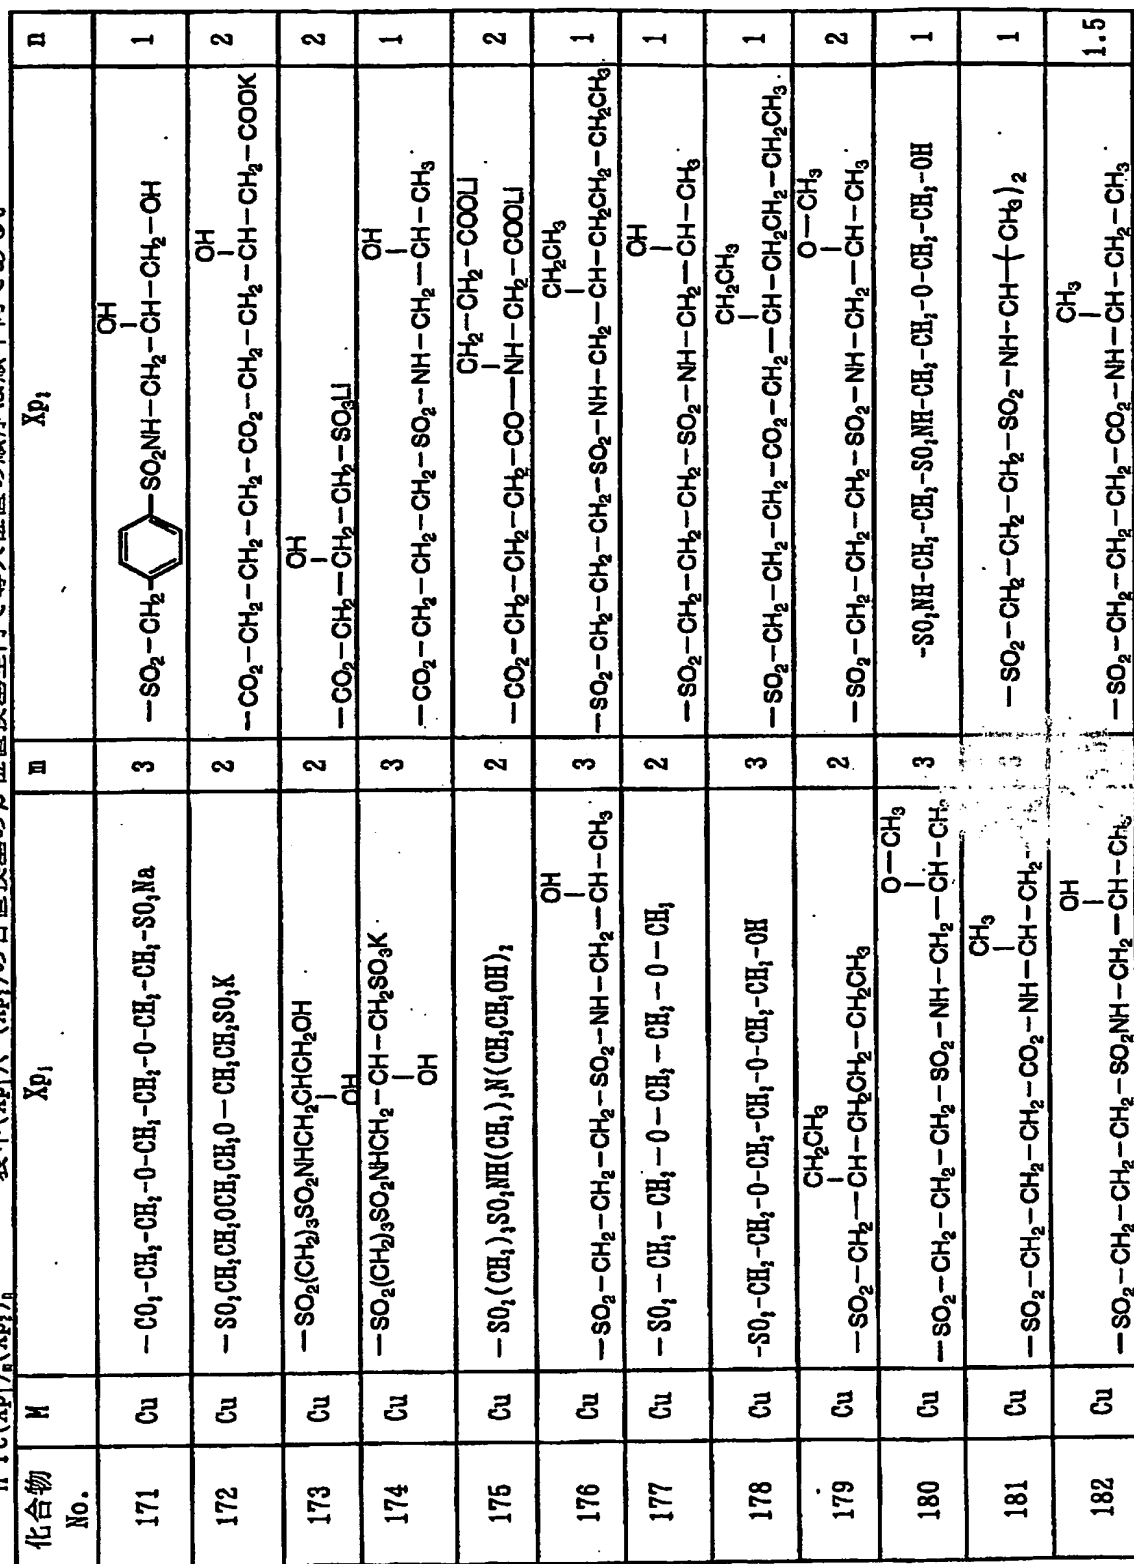 化合物 No. M Xp₁ m Xp₂ n
171 Cu —CO₂-CH₂-CH₂-O-CH₂-CH₂-O-CH₂-CH₂-SO₃Na 3 —SO₂—CH₂— —SO₂NH—CH₂—CH(OH)—CH₂—OH 1
172 Cu —SO₂CH₂CH₂OCH₂CH₂O—CH₂CH₂SO₃K 2 —CO₂—CH₂—CH₂—CH₂—CO₂—CH₂—CH₂—CH(OH)—CH₂—COOK 2
173 Cu —SO₂(CH₂)₃SO₂NHCH₂CH(OH)CH₂OH 2 —CO₂—CH₂—CH(OH)—CH₂—SO₃Li 2
174 Cu —SO₂(CH₂)₃SO₂NHCH₂—CH(OH)—CH₂SO₃K 3 —CO₂—CH₂—CH₂—CH₂—SO₂—NH—CH₂—CH(OH)—CH₃ 1
175 Cu —SO₂(CH₂)₃SO₂NH(CH₂)₃N(CH₂CH₂OH)₂ 2 —CO₂—CH₂—CH₂—CH₂—CO—NH(CH₂—CH₂—COOLi)—CH₂—COOLi 2
176 Cu —SO₂—CH₂—CH₂—CH₂—SO₂—NH—CH₂—CH(OH)—CH₃ 3 —SO₂—CH₂—CH₂—CH₂—SO₂—NH—CH₂—CH(CH₂CH₃)—CH₂CH₂—CH₂CH₃ 1
177 Cu —SO₂—CH₂—CH₂—O—CH₂—CH₂—O—CH₃ 2 —SO₂—CH₂—CH₂—CH₂—SO₂—NH—CH₂—CH(OH)—CH₃ 1
178 Cu -SO₂-CH₂-CH₂-O-CH₂-CH₂-O-CH₂-CH₂-OH 3 —SO₂—CH₂—CH₂—CH₂—CO₂—CH₂—CH(CH₂CH₃)—CH₂CH₂—CH₂CH₃ 1
179 Cu —SO₂—CH₂—CH(CH₂CH₃)—CH₂CH₂—CH₂CH₃ 2 —SO₂—CH₂—CH₂—CH₂—SO₂—NH—CH₂—CH(O—CH₃)—CH₃ 2
180 Cu —SO₂—CH₂—CH₂—CH₂—SO₂—NH—CH₂—CH(O—CH₃)—CH₃ 3 -SO₂NH-CH₂-CH₂-SO₂NH-CH₂-CH₂-O-CH₂-CH₂-OH 1
181 Cu —SO₂—CH₂—CH₂—CH₂—CO₂—NH—CH(CH₃)—CH₂— 3 —SO₂—CH₂—CH₂—CH₂—SO₂—NH—CH—(CH₃)₂ 1
182 Cu —SO₂—CH₂—CH₂—CH₂—SO₂NH—CH₂—CH(OH)—CH₃ —SO₂—CH₂—CH₂—CH₂—CO₂—NH—CH(CH₃)—CH₂—CH₃ 1.5